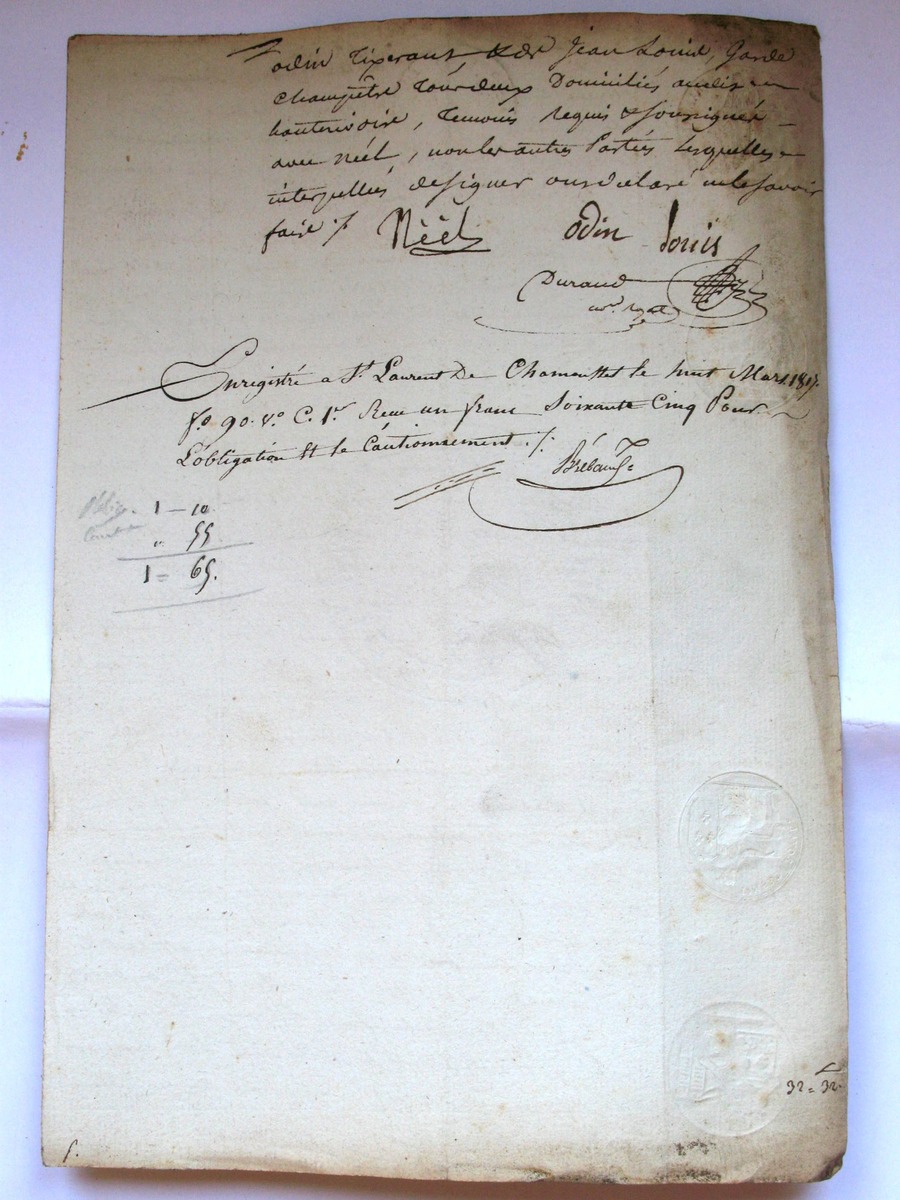 odin Tixerant, & de Jean Louis, Garde
champêtre Tous deux Domiciliés audit
hauterivoire, Temoins Requis & soussignés
avec Néèl, non les autres Parties Lesquelles
interpellées de signer ont déclaré ne le savoir
faire ./.
Néèl odin Louis
Durand
nre. royal
Enregistré a St. Laurent De Chamousset le huit Mars 1817.
fo. 90. vo. C. 1er Reçu un franc Soixante Cinq Pour
L'obligation Et le Cautionnement ./.
1 - 10
" 55
1 = 65.
32 = 32.